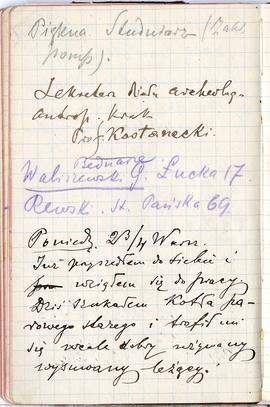 Piękna. Studniarz (Zakł.
pomp).
Sekretarz Działu archeolog.
antrop. Krak
Prof. Kostanecki.
Bednarz
Waliszewski G. Łucka 17
Rewski. St. Pańska 69.
Poniedz. 23/4 Warsz.
Już przyszedłem do siebie i
wziąłem się do pracy
Dziś szukałem Kotła pa-
rowego starego i trafił mi
się wcale dobry używany
leżący.